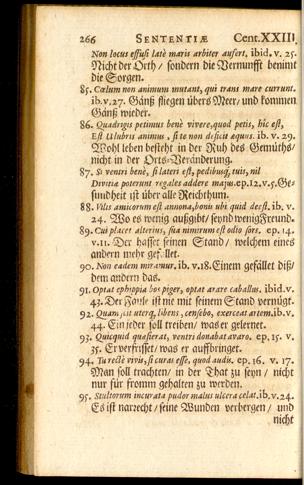 266 SENTENTIÆ Cent.XXIII.
Non locus effusi latè maris arbiter aufert, ibid. v. 25.
Nicht der Orth/ sondern die Vernunfft benimt
die Sorgen.
85. Cœlum non animum mutant, qui trans mare currunt.
ib.v.27. Gänß fliegen übers Meer/ und kommen
Gänß wieder.
86. Quadrigis petimus benè vivere, quod petis, hîc est,
Est Ulubris animus, si te non deficit æquus. ib. v. 29.
Wohl leben bestehet in der Ruh des Gemüths/
nicht in der Orts-Veränderung.
87. Si ventri benè, si lateri est, pedibusq; tuis, nil
Divitiæ poterunt regales addere majus. ep.12.v.5. Ge-
sundheit ist über alle Reichthum.
88. Vilis amicorum est annona, bonis ubi quid deest. ib. v.
24. Wo es wenig außgibt/ seynd wenig Freund.
89. Cui placet alterius, sua nimirum est odio sors. ep. 14.
v.11. Der hasset seinen Stand/ welchem eines
andern mehr gefället.
90. Non eadem miramur. ib. v.18. Einem gefället diß/
dem andern das.
91. Optat ephippia bos piger, optat arare caballus. ibid.v.
43. Der Faule ist nie mit seinem Stand vernügt.
92. Quam scit uterq, libens, censebo, exerceat artem. ib.v.
44. Ein jeder soll treiben/ was er gelernet.
93. Quicquid quæsierat, ventri donabat avaro. ep. 15. v.
35. Er verfrisset/ was er auffbringet.
94. Tu rectè vivis, si curas esse, quod audis. ep. 16. v. 17.
Man soll trachten/ in der That zu seyn/ nicht
nur für fromm gehalten zu werden.
95. Stultorum incurata pudor malus ulcera celat. ib.v.24.
Es ist narrecht/ seine Wunden verbergen/ und
nicht